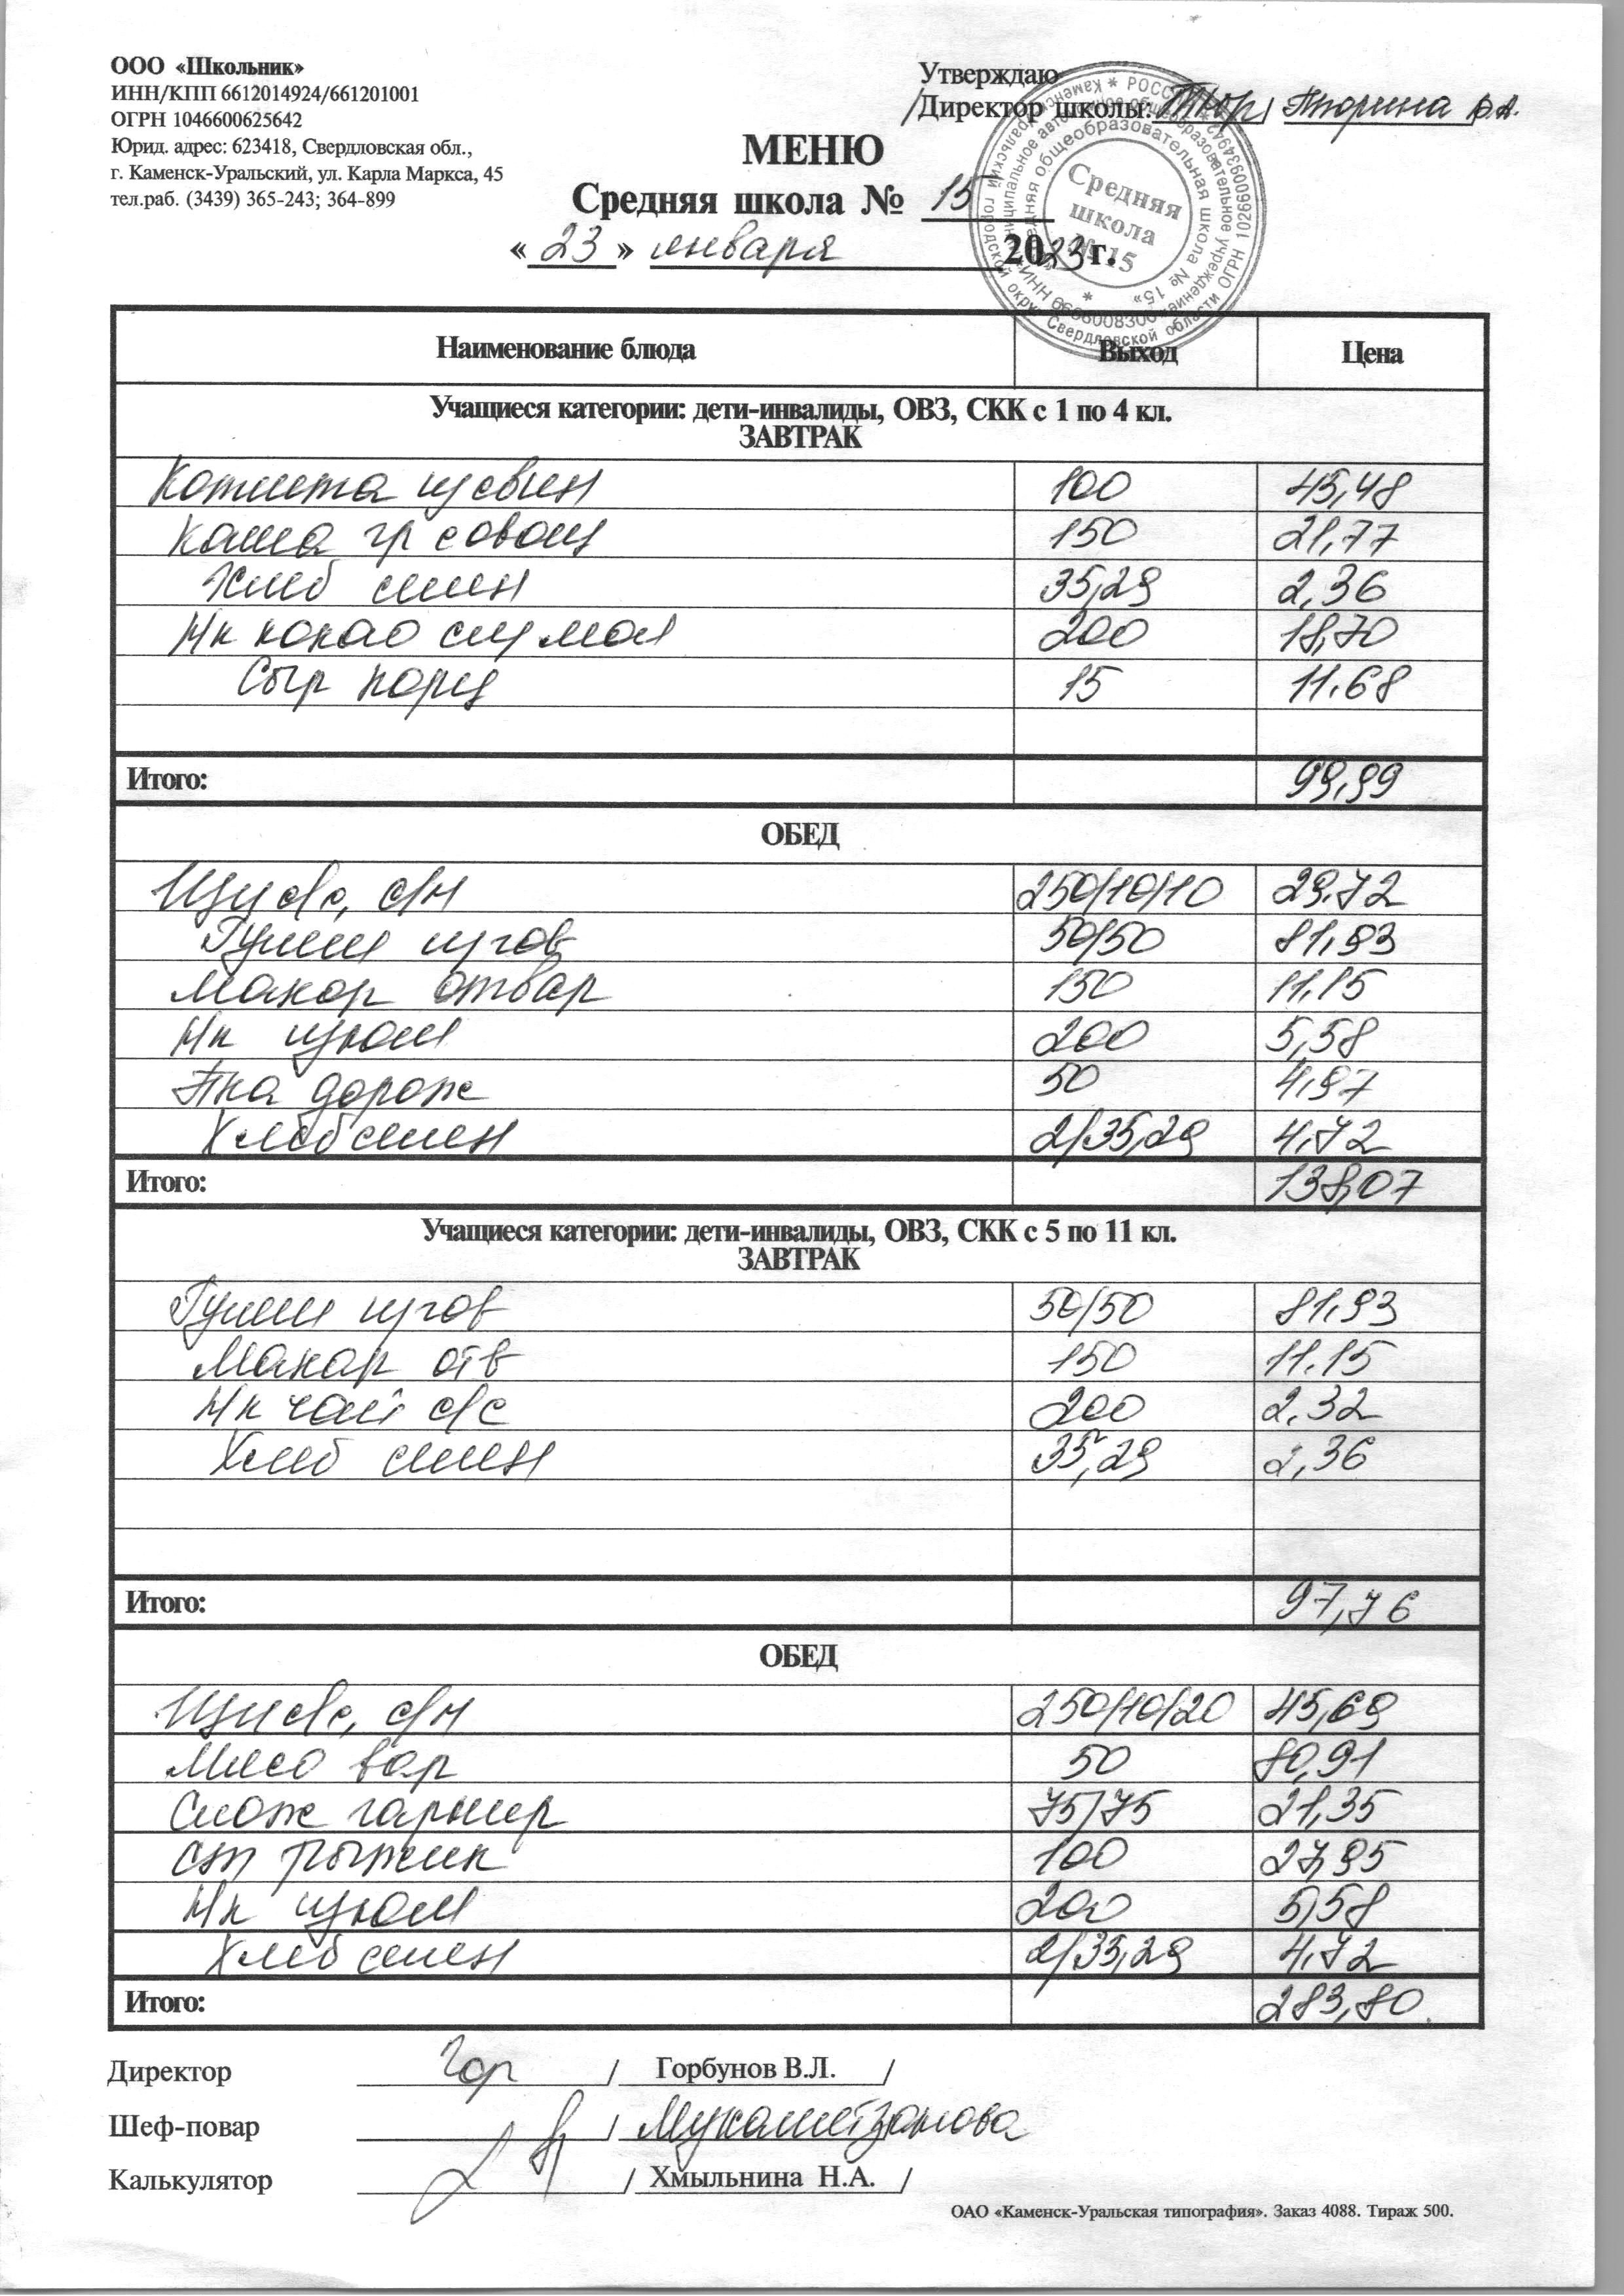 ООО «Школьник»
ИНН/КПП 6612014924/661201001
ОГРН 1046600625642
Юрид. адрес: 623418, Свердловская обл.,
г. Каменск-Уральский, ул. Карла Маркса, 45
тел.раб. (3439) 365-243; 364-899
Утверждаю
Директор школы:
МЕНЮ
Средняя школа № 15
«23» января 2023 г.
Средняя
школа
№ 15
Наименование блюда Выход Цена
Учащиеся категории: дети-инвалиды, ОВЗ, СКК с 1 по 4 кл.
ЗАВТРАК
Котлета из свин 100 45,48
Каша гр с овощ 150 21,77
Хлеб смен 35,29 2,36
Нк какао сгу мол 200 18,70
Сыр порц 15 11.68
Итого: 99,99
ОБЕД
Щи с/с, с/м 250/10/10 29.72
Гуляш из гов 50/50 81,93
Макар отвар 150 11.15
Нк изюм 200 5,58
дорож 50 4,97
Хлеб смен 2/35,29 4,72
Итого: 138,07
Учащиеся категории: дети-инвалиды, ОВЗ, СКК с 5 по 11 кл.
ЗАВТРАК
Гуляш из гов 50/50 81,93
Макар отв 150 11.15
Нк чай с/с 200 2.32
Хлеб смен 35,29 2,36
Итого: 97,76
ОБЕД
Щи с/с, с/м 250/10/20 45,69
Мясо вар 50 80,91
Слож гарнир 75/75 21,35
Рыжик 100 27,95
Нк изюм 200 5,58
Хлеб смен 2/35,29 4,72
Итого: 283,80
Директор / Горбунов В.Л. /
Шеф-повар /
Калькулятор / Хмыльнина Н.А. /
ОАО «Каменск-Уральская типография». Заказ 4088. Тираж 500.